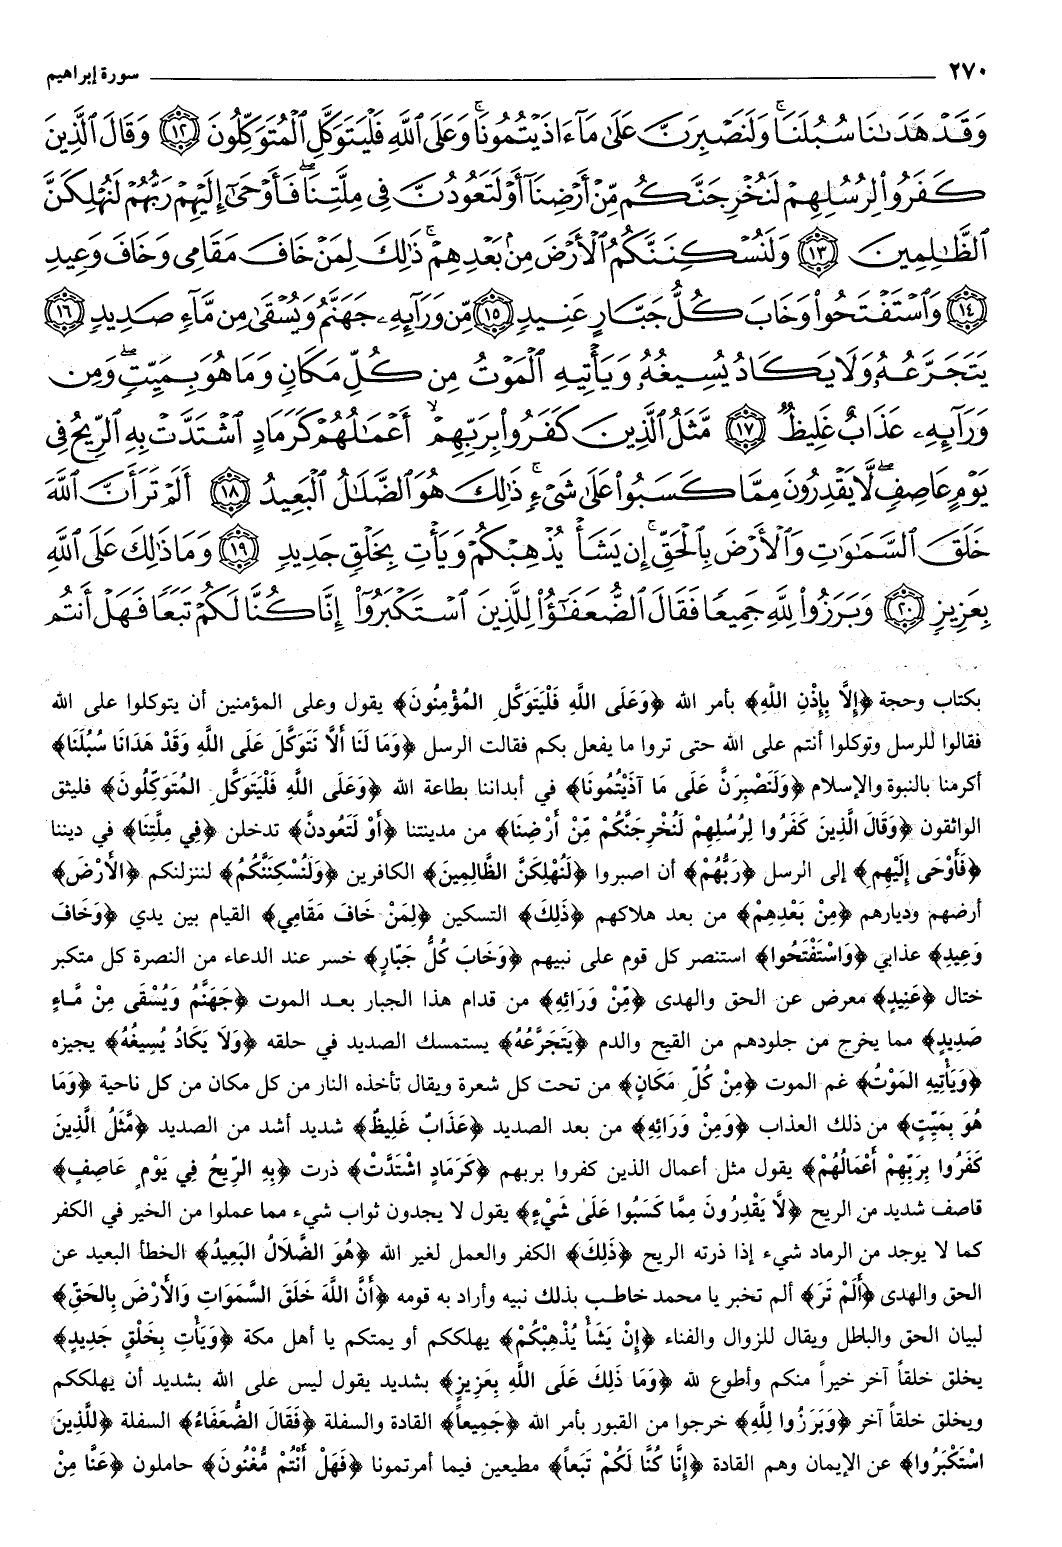 ٢٧٠ سورة إبراهيم
وَقَدْ هَدَىٰنَا سُبُلَنَا ۚ وَلَنَصْبِرَنَّ عَلَىٰ مَآ ءَاذَيْتُمُونَا ۚ وَعَلَى ٱللَّهِ فَلْيَتَوَكَّلِ ٱلْمُتَوَكِّلُونَ ١٢ وَقَالَ ٱلَّذِينَ
كَفَرُوا۟ لِرُسُلِهِمْ لَنُخْرِجَنَّكُم مِّنْ أَرْضِنَآ أَوْ لَتَعُودُنَّ فِى مِلَّتِنَا ۖ فَأَوْحَىٰٓ إِلَيْهِمْ رَبُّهُمْ لَنُهْلِكَنَّ
ٱلظَّـٰلِمِينَ ١٣ وَلَنُسْكِنَنَّكُمُ ٱلْأَرْضَ مِنۢ بَعْدِهِمْ ۚ ذَٰلِكَ لِمَنْ خَافَ مَقَامِى وَخَافَ وَعِيدِ
١٤ وَٱسْتَفْتَحُوا۟ وَخَابَ كُلُّ جَبَّارٍ عَنِيدٍ ١٥ مِّن وَرَآئِهِۦ جَهَنَّمُ وَيُسْقَىٰ مِن مَّآءٍ صَدِيدٍ ١٦
يَتَجَرَّعُهُۥ وَلَا يَكَادُ يُسِيغُهُۥ وَيَأْتِيهِ ٱلْمَوْتُ مِن كُلِّ مَكَانٍ وَمَا هُوَ بِمَيِّتٍ ۖ وَمِن
وَرَآئِهِۦ عَذَابٌ غَلِيظٌ ١٧ مَّثَلُ ٱلَّذِينَ كَفَرُوا۟ بِرَبِّهِمْ ۖ أَعْمَـٰلُهُمْ كَرَمَادٍ ٱشْتَدَّتْ بِهِ ٱلرِّيحُ فِى
يَوْمٍ عَاصِفٍ ۖ لَّا يَقْدِرُونَ مِمَّا كَسَبُوا۟ عَلَىٰ شَىْءٍ ۚ ذَٰلِكَ هُوَ ٱلضَّلَـٰلُ ٱلْبَعِيدُ ١٨ أَلَمْ تَرَ أَنَّ ٱللَّهَ
خَلَقَ ٱلسَّمَـٰوَٰتِ وَٱلْأَرْضَ بِٱلْحَقِّ ۚ إِن يَشَأْ يُذْهِبْكُمْ وَيَأْتِ بِخَلْقٍ جَدِيدٍ ١٩ وَمَا ذَٰلِكَ عَلَى ٱللَّهِ
بِعَزِيزٍ ٢٠ وَبَرَزُوا۟ لِلَّهِ جَمِيعًا فَقَالَ ٱلضُّعَفَـٰٓؤُا۟ لِلَّذِينَ ٱسْتَكْبَرُوٓا۟ إِنَّا كُنَّا لَكُمْ تَبَعًا فَهَلْ أَنتُم
بكتاب وحجة ﴿إِلَّا بِإِذْنِ اللَّهِ﴾ بأمر الله ﴿وَعَلَى اللَّهِ فَلْيَتَوَكَّلِ المُؤْمِنُونَ﴾ يقول وعلى المؤمنين أن يتوكلوا على الله
فقالوا للرسل وتوكلوا أنتم على الله حتى تروا ما يفعل بكم فقالت الرسل ﴿وَمَا لَنَا أَلَّا نَتَوَكَّلَ عَلَى اللَّهِ وَقَدْ هَدَانَا سُبُلَنَا﴾
أكرمنا بالنبوة والإسلام ﴿وَلَنَصْبِرَنَّ عَلَى مَا آذَيْتُمُونَا﴾ في أبداننا بطاعة الله ﴿وَعَلَى اللَّهِ فَلْيَتَوَكَّلِ المُتَوَكِّلُونَ﴾ فليثق
الواثقون ﴿وَقَالَ الَّذِينَ كَفَرُوا لِرُسُلِهِمْ لَنُخْرِجَنَّكُمْ مِّنْ أَرْضِنَا﴾ من مدينتنا ﴿أَوْ لَتَعُودنَّ﴾ تدخلن ﴿فِي مِلَّتِنَا﴾ في ديننا
﴿فَأَوْحَى إِلَيْهِم﴾ إلى الرسل ﴿رَبُّهُمْ﴾ أن اصبروا ﴿لَنُهْلِكَنَّ الظَّالِمِينَ﴾ الكافرين ﴿وَلَنُسْكِنَنَّكُمُ﴾ لننزلنكم ﴿الأَرْضَ﴾
أرضهم وديارهم ﴿مِنْ بَعْدِهِمْ﴾ من بعد هلاكهم ﴿ذَلِكَ﴾ التسكين ﴿لِمَنْ خَافَ مَقَامِي﴾ القيام بين يدي ﴿وَخَافَ
وَعِيدِ﴾ عذابي ﴿وَاسْتَفْتَحُوا﴾ استنصر كل قوم على نبيهم ﴿وَخَابَ كُلُّ جَبَّارٍ﴾ خسر عند الدعاء من النصرة كل متكبر
ختال ﴿عَنِيدٍ﴾ معرض عن الحق والهدى ﴿مِّنْ وَرَائِهِ﴾ من قدام هذا الجبار بعد الموت ﴿جَهَنَّمُ وَيُسْقَى مِنْ مَّاءٍ
صَدِيدٍ﴾ مما يخرج من جلودهم من القيح والدم ﴿يَتَجَرَّعُهُ﴾ يستمسك الصديد في حلقه ﴿وَلَا يَكَادُ يُسِيغُهُ﴾ يجيزه
﴿وَيَأْتِيهِ المَوْتُ﴾ غم الموت ﴿مِنْ كُلِّ مَكَانٍ﴾ من تحت كل شعرة ويقال تأخذه النار من كل مكان من كل ناحية ﴿وَمَا
هُوَ بِمَيِّتٍ﴾ من ذلك العذاب ﴿وَمِنْ وَرَائِهِ﴾ من بعد الصديد ﴿عَذَابٌ غَلِيظٌ﴾ شديد أشد من الصديد ﴿مَّثَلُ الَّذِينَ
كَفَرُوا بِرَبِّهِمْ أَعْمَالُهُمْ﴾ يقول مثل أعمال الذين كفروا بربهم ﴿كَرَمَادٍ اشْتَدَّتْ﴾ ذرت ﴿بِهِ الرِّيحُ فِي يَوْمٍ عَاصِفٍ﴾
قاصف شديد من الريح ﴿لَّا يَقْدِرُونَ مِمَّا كَسَبُوا عَلَىٰ شَيْءٍ﴾ يقول لا يجدون ثواب شيء مما عملوا من الخير في الكفر
كما لا يوجد من الرماد شيء إذا ذرته الريح ﴿ذَلِكَ﴾ الكفر والعمل لغير الله ﴿هُوَ الضَّلَالُ البَعِيدُ﴾ الخطأ البعيد عن
الحق والهدى ﴿أَلَمْ تَرَ﴾ ألم تخبر يا محمد خاطب بذلك نبيه وأراد به قومه ﴿أَنَّ اللَّهَ خَلَقَ السَّمَوَاتِ وَالأَرْضَ بِالحَقِّ﴾
لبيان الحق والباطل ويقال للزوال والفناء ﴿إِنْ يَشَأْ يُذْهِبْكُمْ﴾ يهلككم أو يمتكم يا أهل مكة ﴿وَيَأْتِ بِخَلْقٍ جَدِيدٍ﴾
يخلق خلقاً آخر خيراً منكم وأطوع لله ﴿وَمَا ذَلِكَ عَلَى اللَّهِ بِعَزِيزٍ﴾ بشديد يقول ليس على الله بشديد أن يهلككم
ويخلق خلقاً آخر ﴿وَبَرَزُوا لِلَّهِ﴾ خرجوا من القبور بأمر الله ﴿جَمِيعاً﴾ القادة والسفلة ﴿فَقَالَ الضُّعَفَاءُ﴾ السفلة ﴿لِلَّذِينَ
اسْتَكْبَرُوا﴾ عن الإيمان وهم القادة ﴿إِنَّا كُنَّا لَكُمْ تَبَعاً﴾ مطيعين فيما أمرتمونا ﴿فَهَلْ أَنْتُمْ مُّغْنُونَ﴾ حاملون ﴿عَنَّا مِنْ